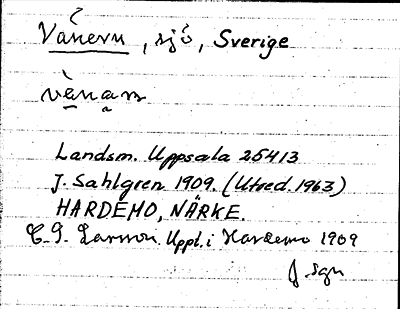 Vänern, sjö, Sverige
vànan
Landsm. Uppsala 25413
J. Sahlgren 1909. (Utred. 1963)
HARDEMO, NÄRKE.
C. G. Larsson. Uppt. i Hardemo 1909
J. Sgn